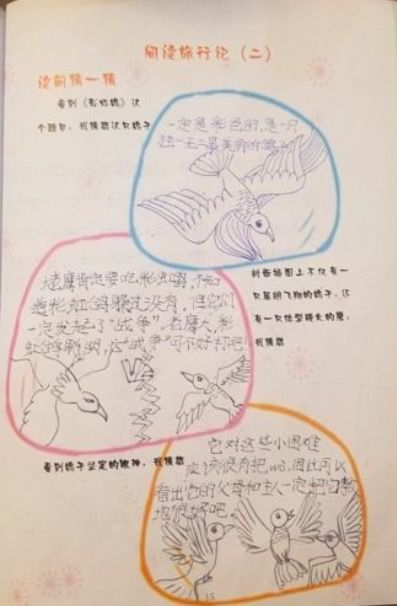 阅读旅行记（二）
读前猜一猜
看到《彩虹鸽》这
个题目，我猜想这只鸽子
一定是彩色的,是一只
独一无二最美丽的鸽子
老鹰肯定要吃彩虹鸽,不知
道彩虹鸽躲过没有,但它们
一定发起了“战争”,老鹰大,彩
虹鸽聪明,这“战争”可不好打吧!
封面插图上不仅有一
只展翅飞翔的鸽子，还
有一只体型硕大的鹰，
我猜想
看到鸽子坚定的眼神，我猜想
它对这些小困难
应该很有把握,因此可以
看出它的父母和主人一定把它教
得很好吧。
15